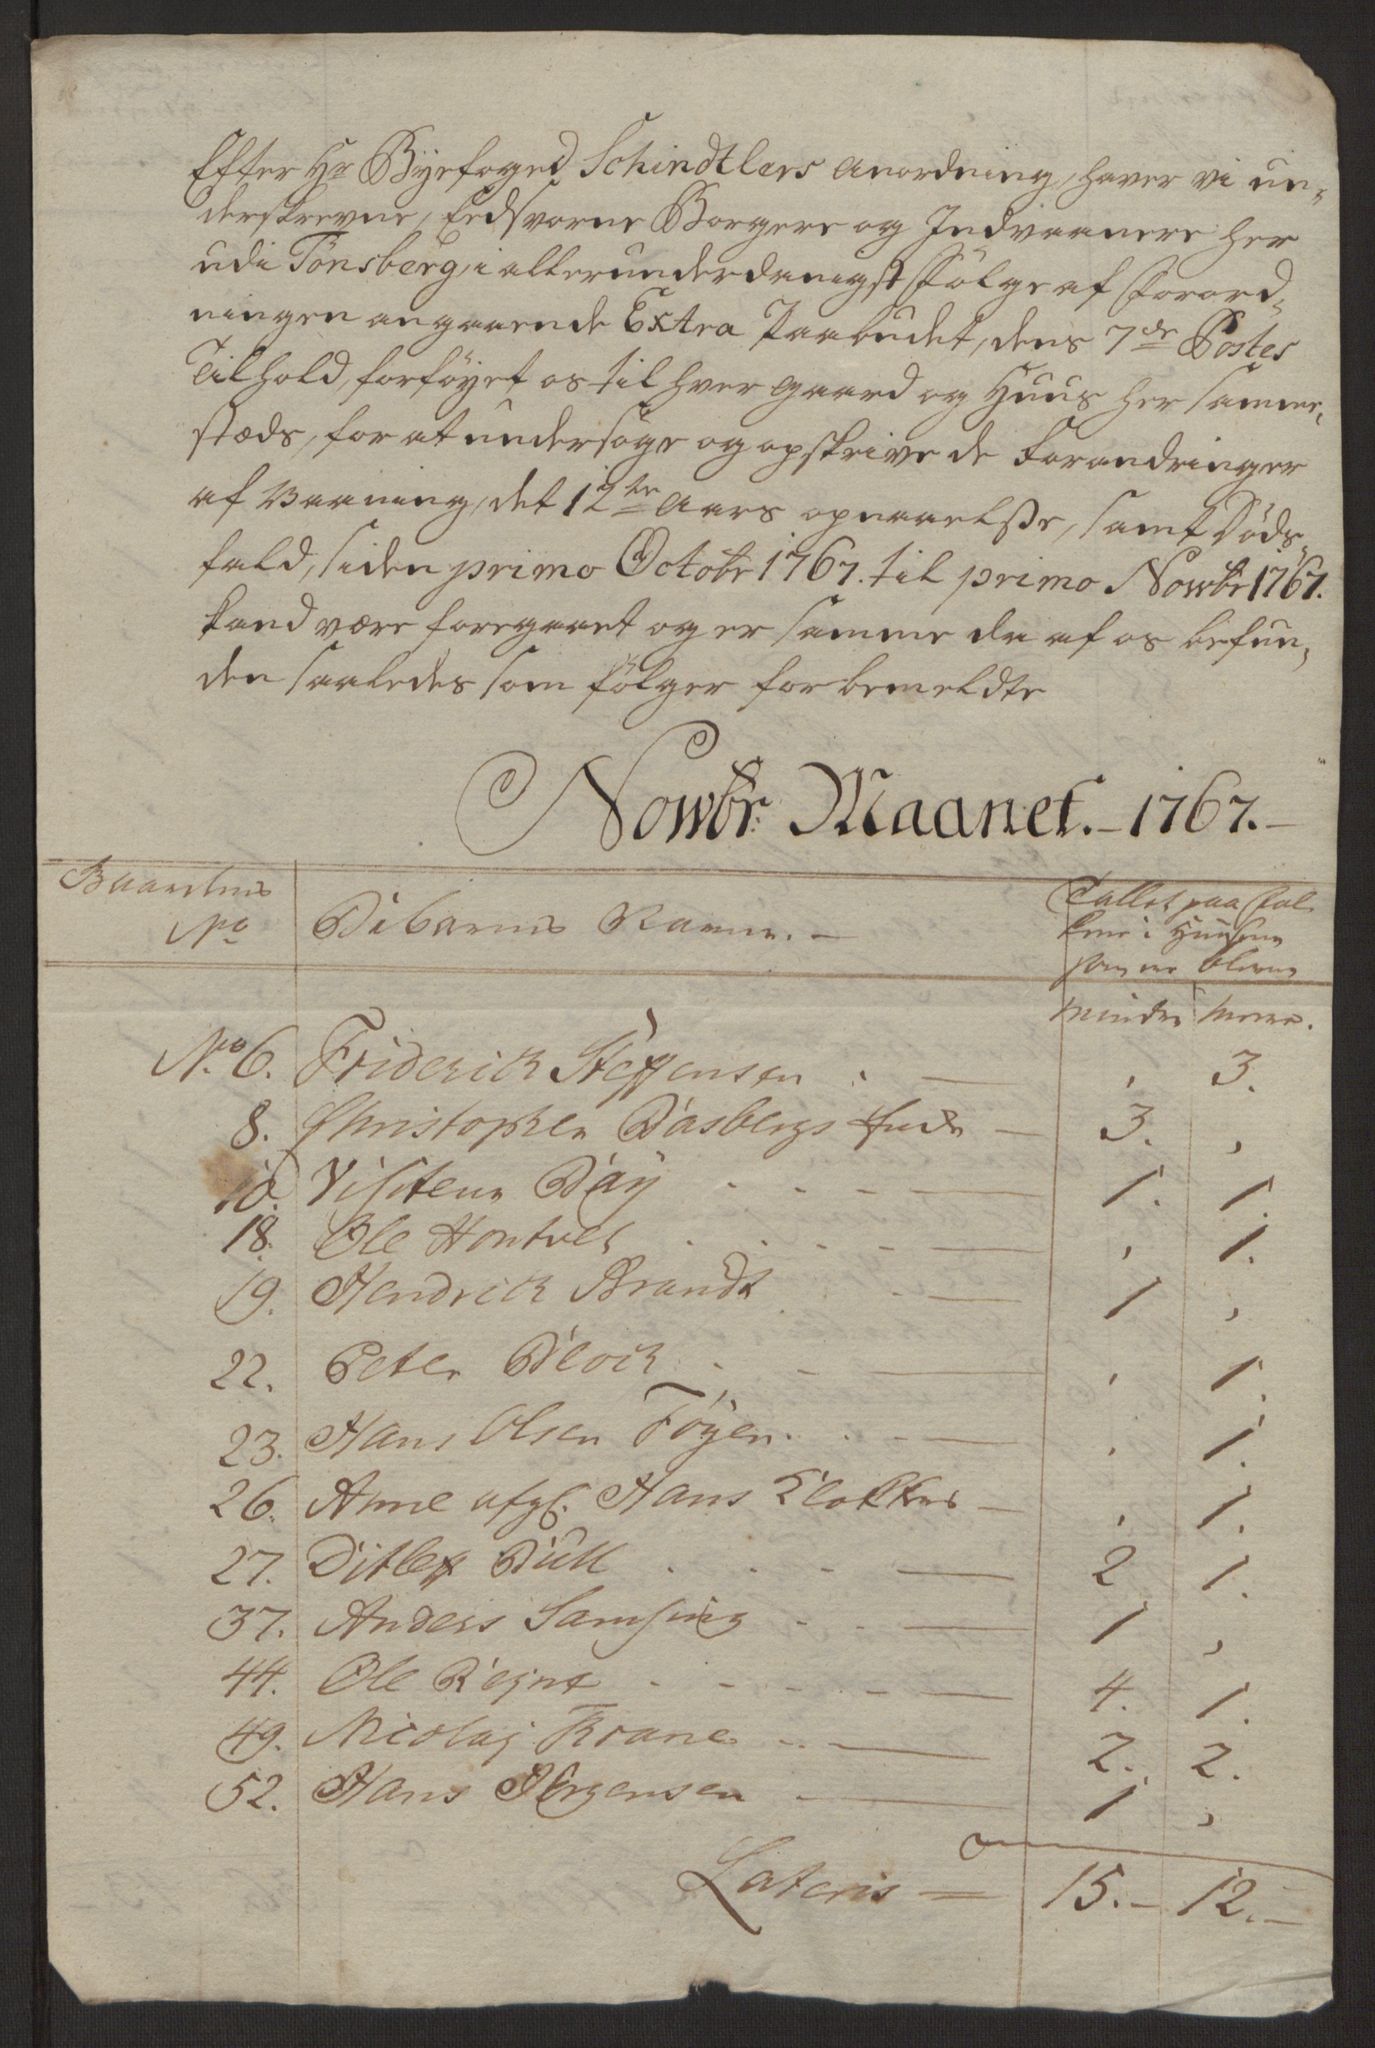 Efter Hr Byefoged Schindtlers Anordning, haver vi un-
derskrevne, Eedsvorne Borgere og Indvaanere her
udi Tönsberg, i allerunderdanigst fölge af Forord-
ningen angaaende Extra Paabudet, dens 7de Postes
Tilhold, forföyet os til hver Gaard og Huus her samme-
stæds, for at undersöge og opskrive de Forandringer
af Vaaning, det 12te Aars opnaaelsse, samt Döds-
fald, siden primo Octobr 1767. til primo Novbr 1767.
kand være foregaaet og er samme da af os befun-
den saaledes som fölger for bemeldte
Novbr: Maanet. - 1767. -
Gaardens
No
Beboernes Navne. -
Tallet paa Fol-
kene i Huusene
som ere blevne
Mindre Meere.
No. 6. Friderich Steffensen . — , 3.
8. Christopher Dasbergs Enke — 3. ,
10. Visiteur Day . . - - — 1. 1.
18. Ole Hontvet . . - - — , 1.
19. Hendrich Brandt . - — 1 ,
22. Peter Bloch . - — , 1.
23. Hans Olsen Föyen . . - — , 1.
26. Anne afg. Hans Klokkers — , 1.
27. Ditlef Bull . . - - — 2 1.
37. Anders Samsing - - — 1 ,
44. Ole Bejnt . - - - - — 4. 1.
49. Nicolaj Krane - .. — 2. 2.
52. Hans Jörgensen — 1 ,
Lateris = 15. - 12. -